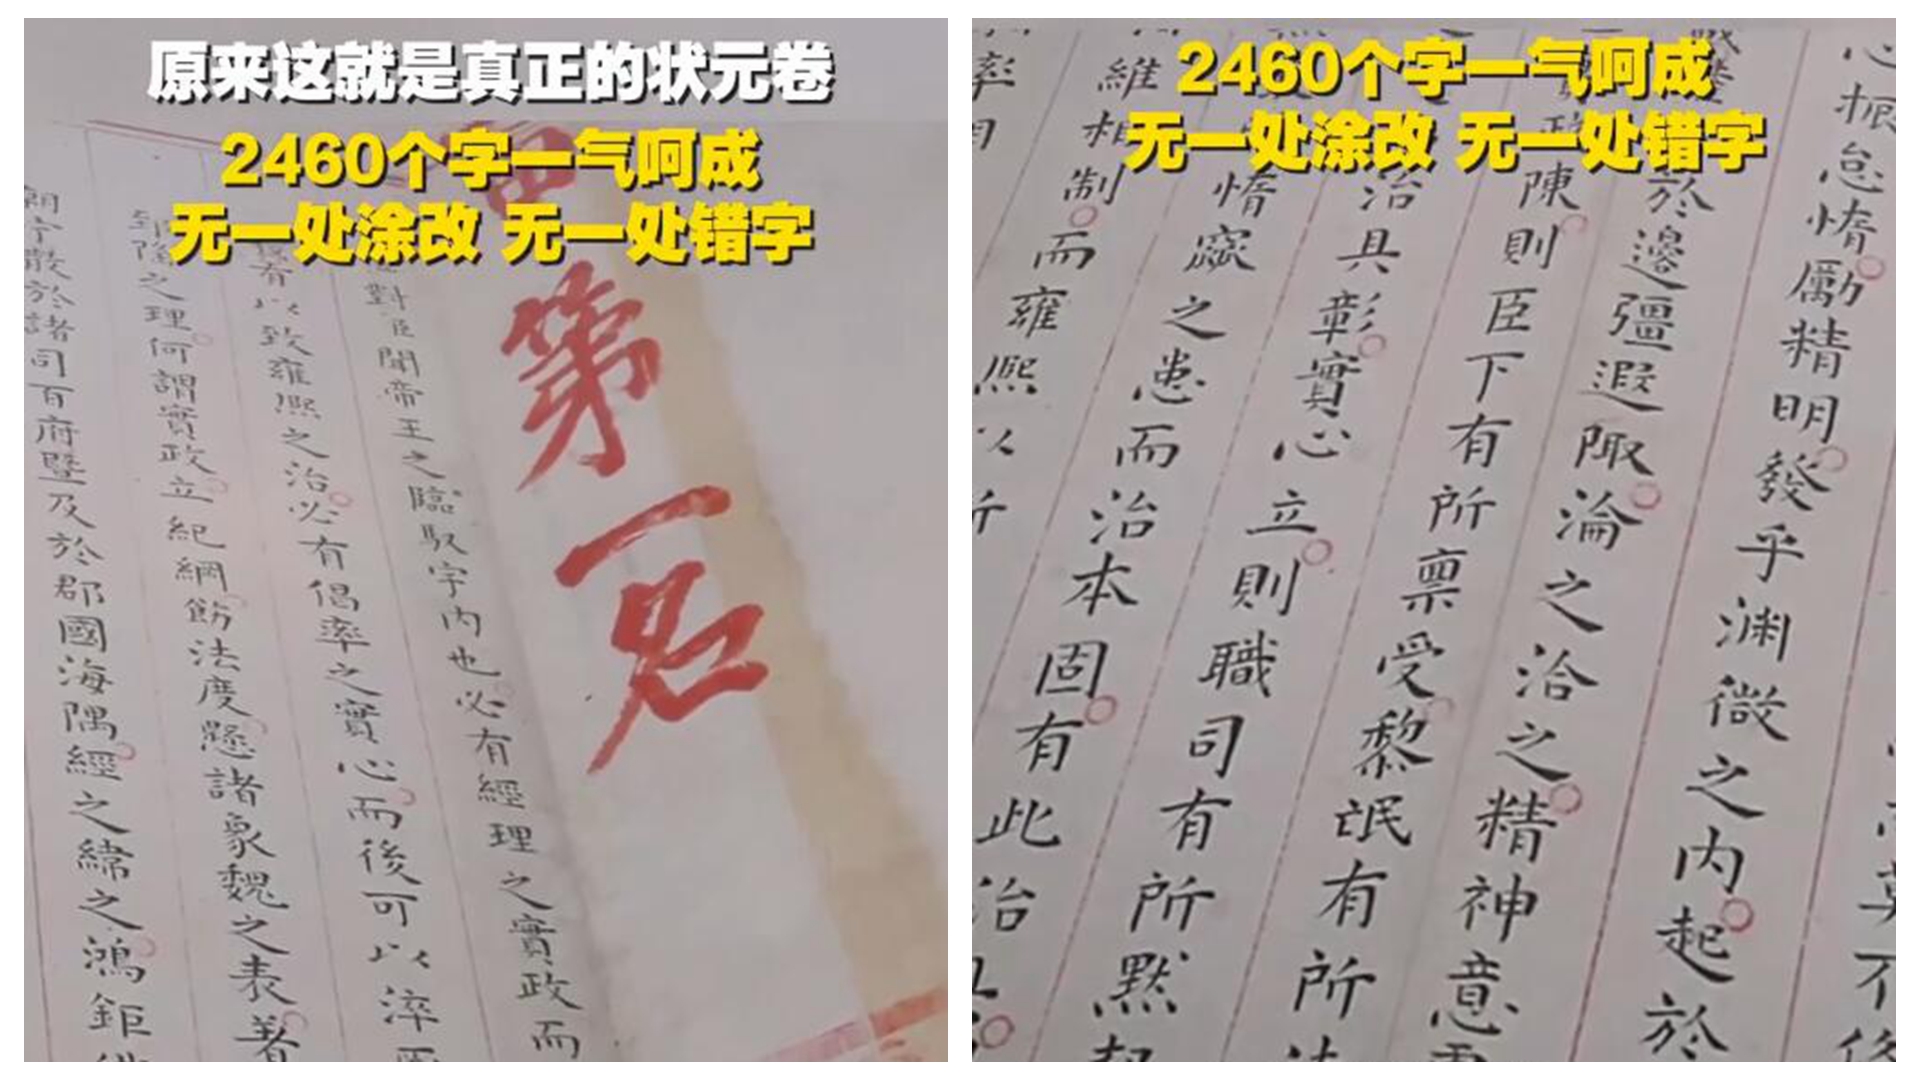 原来这就是真正的状元卷
2460个字一气呵成
无一处涂改 无一处错字
第一名
對臣聞帝王之臨馭宇内也必有經理之實政而
有以致雍熙之治必有倡率之實心而後可以淬
郅隆之理何謂實政立紀綱飭法度懸諸象魏之表著
朝宁散於諸司百府暨及於郡國海隅經之緯之鴻鉅
2460个字一气呵成
无一处涂改 无一处错字
莫不
心振怠惰厲精明發乎淵微之内起於
於邊彊遐陬淪之洽之精神意
陳則臣下有所稟受黎氓有所
治具彰實心立則職司有所默
惰窳之患而治本固有此治
維相制而雍熙以